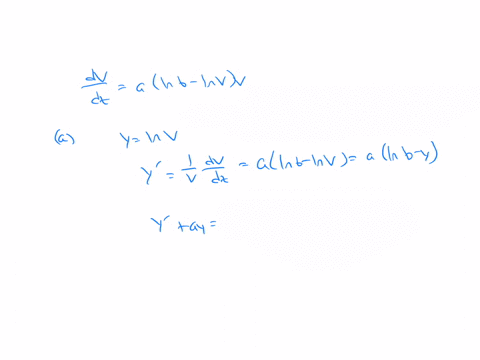 dV/dt = a (ln b - ln V) V
(a) y = ln V
y' = 1/V dV/dt = a (ln b - ln V) = a (ln b - y)
y' + ay =